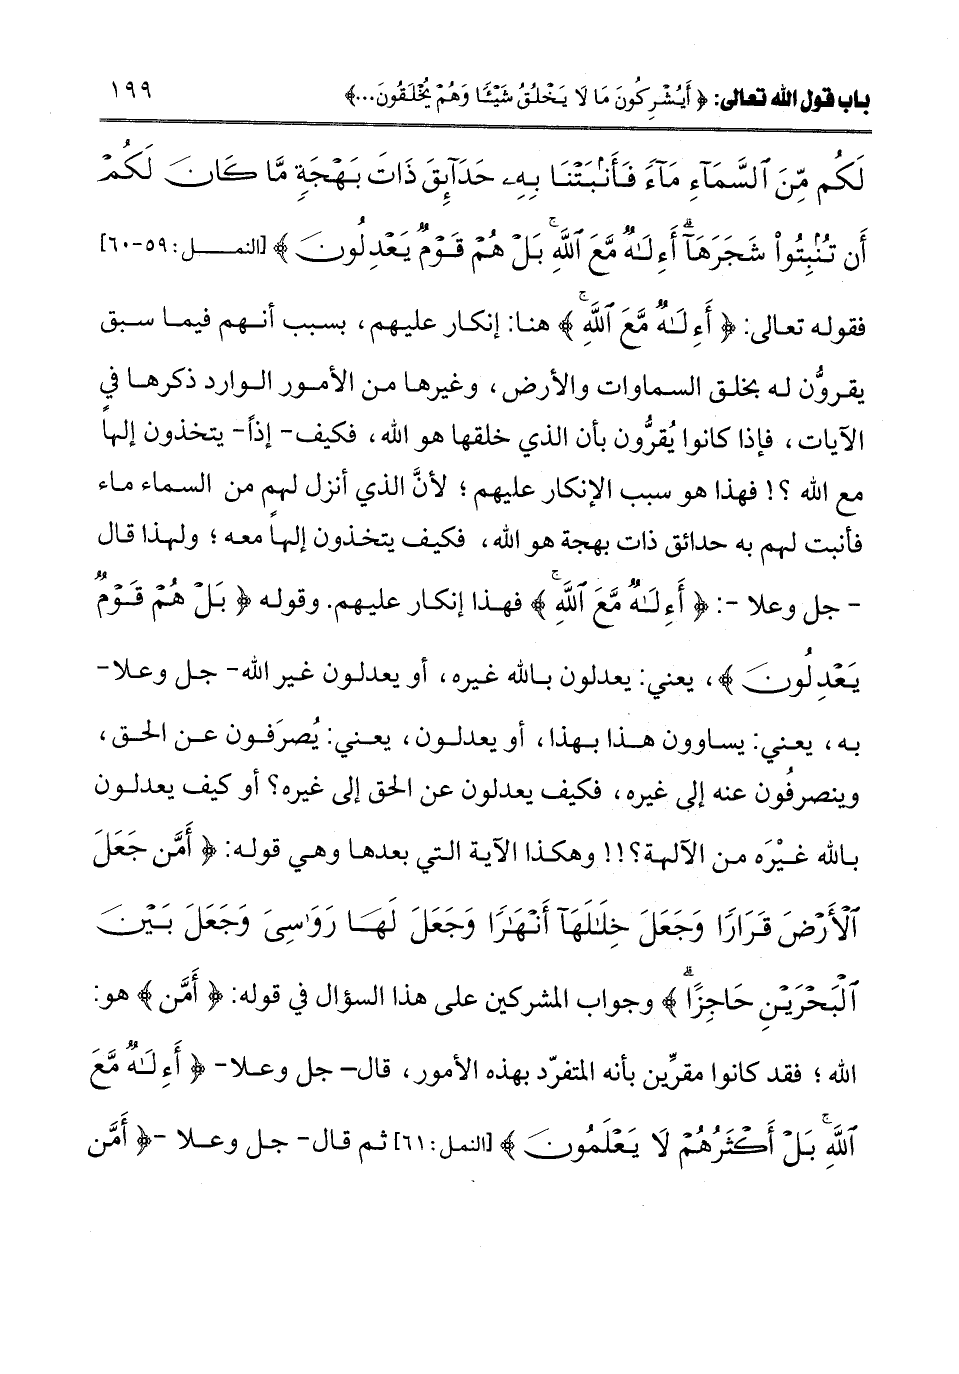 باب قول الله تعالى: ﴿ أَيُشْرِكُونَ مَا لَا يَخْلُقُ شَيْئًا وَهُمْ يُخْلَقُونَ...﴾ ١٩٩
لَكُم مِّنَ ٱلسَّمَآءِ مَآءً فَأَنۢبَتْنَا بِهِۦ حَدَآئِقَ ذَاتَ بَهْجَةٍ مَّا كَانَ لَكُمْ
أَن تُنۢبِتُوا۟ شَجَرَهَآ ۗ أَءِلَـٰهٌ مَّعَ ٱللَّهِ ۚ بَلْ هُمْ قَوْمٌ يَعْدِلُونَ ﴾ [النمل: ٥٩-٦٠]
فقوله تعالى: ﴿ أَءِلَـٰهٌ مَّعَ ٱللَّهِ ۚ ﴾ هنا: إنكار عليهم، بسبب أنهم فيما سبق
يقرونُّ له بخلق السماوات والأرض، وغيرها من الأمور الوارد ذكرها في
الآيات، فإذا كانوا يُقرُّون بأن الذي خلقها هو الله، فكيف- إذاً- يتخذون إلهاً
مع الله ؟! فهذا هو سبب الإنكار عليهم ؛ لأنَّ الذي أنزل لهم من السماء ماء
فأنبت لهم به حدائق ذات بهجة هو الله، فكيف يتخذون إلهاً معه ؛ ولهذا قال
- جل وعلا -: ﴿ أَءِلَـٰهٌ مَّعَ ٱللَّهِ ۚ ﴾ فهذا إنكار عليهم. وقوله ﴿ بَلْ هُمْ قَوْمٌ
يَعْدِلُونَ ﴾، يعني: يعدلون بالله غيره، أو يعدلون غير الله- جل وعلا-
به، يعني: يساوون هذا بهذا، أو يعدلون، يعني: يُصرَفون عن الحق،
وينصرفُون عنه إلى غيره، فكيف يعدلون عن الحق إلى غيره؟ أو كيف يعدلون
بالله غيْرَه من الآلهة؟!! وهكذا الآية التي بعدها وهي قوله: ﴿ أَمَّن جَعَلَ
ٱلْأَرْضَ قَرَارًا وَجَعَلَ خِلَـٰلَهَآ أَنْهَـٰرًا وَجَعَلَ لَهَا رَوَٰسِىَ وَجَعَلَ بَيْنَ
ٱلْبَحْرَيْنِ حَاجِزًا ۗ ﴾ وجواب المشركين على هذا السؤال في قوله: ﴿ أَمَّن ﴾ هو:
الله ؛ فقد كانوا مقرِّين بأنه المتفرّد بهذه الأمور، قال- جل وعلا- ﴿ أَءِلَـٰهٌ مَّعَ
ٱللَّهِ ۚ بَلْ أَكْثَرُهُمْ لَا يَعْلَمُونَ ﴾ [النمل: ٦١] ثم قال- جل وعلا -﴿ أَمَّن